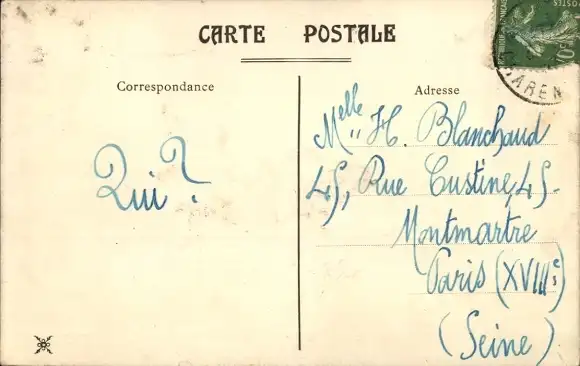 CARTE POSTALE
Correspondance
Qui?
Adresse
Melle H. Blanchaud
45, Rue Custine, 45.
Montmartre
Paris (XVIIIe)
(Seine)